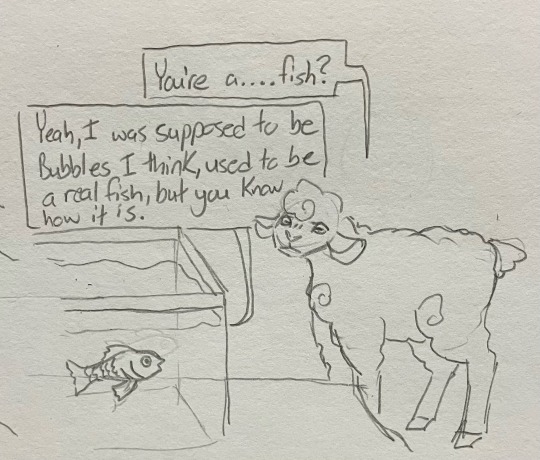 You're a....fish?
Yeah, I was supposed to be
Bubbles I think, used to be
a real fish, but you know
how it is.